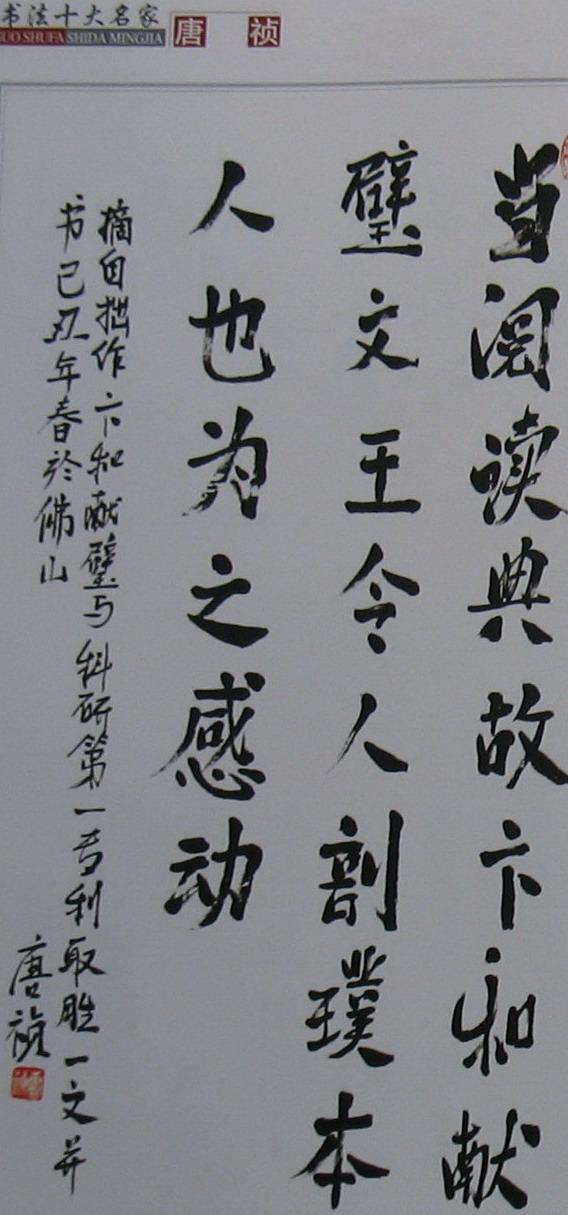 书法十大名家
UO SHUFA SHIDA MINGJIA
唐 祯
当阅读典故卞和献
璧文王令人剖璞本
人也为之感动
摘自拙作卞和献璧与科研第一专利取胜一文并
书己丑年春於佛山
唐祯